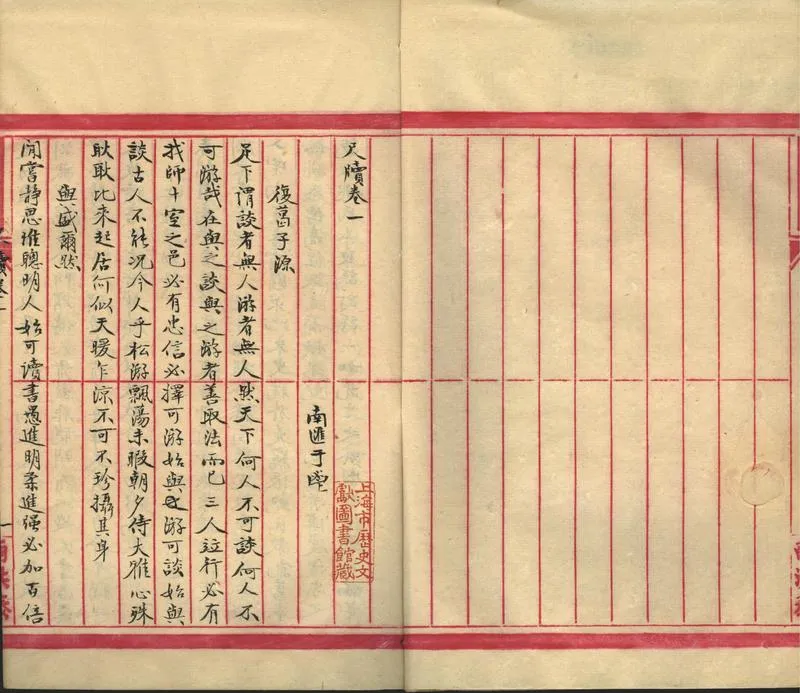 尺牘卷一
南匯于鬯
上海市歷史文
獻圖書館藏
復葛子源
足下謂談者無人游者無人然天下何人不可談何人不
可游哉在與之談與之游者善取法而已三人竝行必有
我師十室之邑必有忠信必擇可游始與之游可談始與
談古人不能況今人乎松游飄蕩未暇朝夕侍大雅心殊
耿耿比來起居何似天暖乍涼不可不珍攝其身
與盛爾然
閒嘗靜思惟聰明人始可讀書愚進明柔進強必加百倍